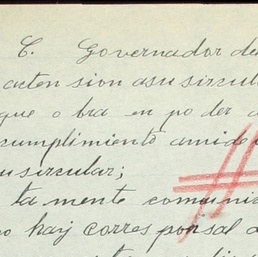 C. Governador de
acten sion asu sircula
que o bra en po der d
cumplimiento amide
u sircular;
ta mente comunic
o haij corres ponsal d